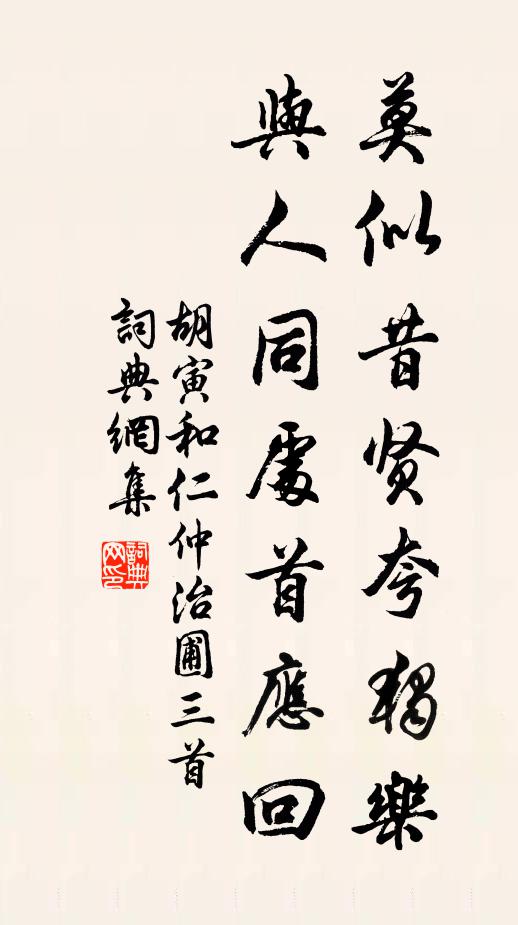 莫似昔贤夸獨樂
與人同處首應回
胡寅和仁仲治圃三首
詞典網集
詞典网印